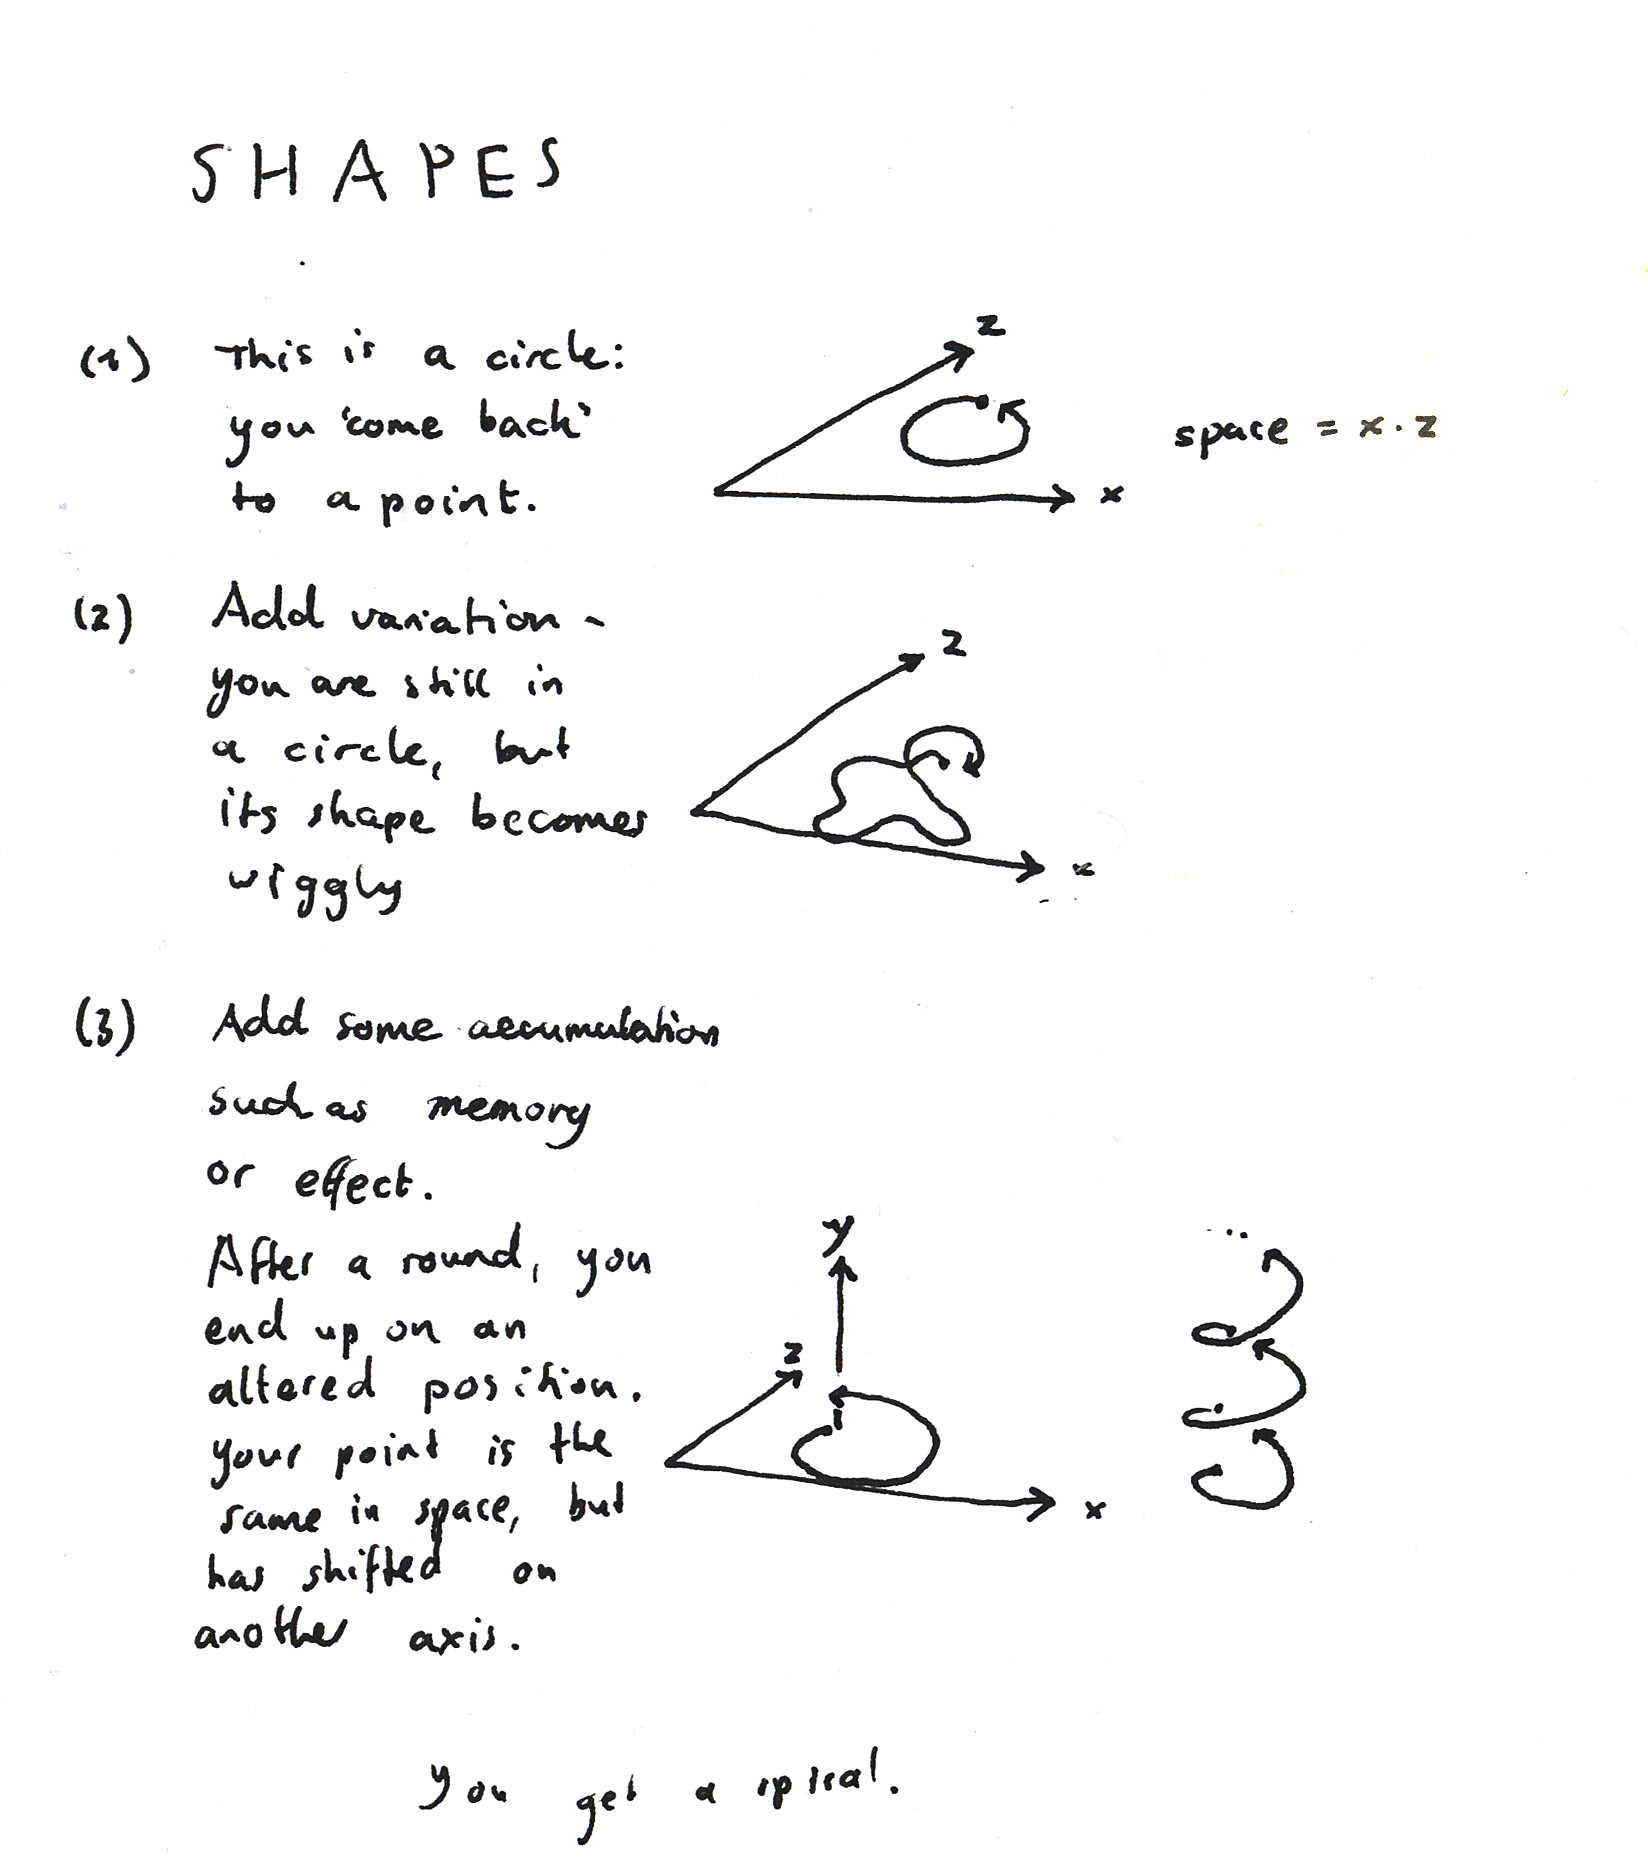 SHAPES
(1) This is a circle:
you 'come back'
to a point.
z
x
space = x · z
(2) Add variation -
you are still in
a circle, but
its shape becomes
wiggly
z
x
(3) Add some accumulation
such as memory
or effect.
After a round, you
end up on an
altered position.
your point is the
same in space, but
has shifted on
another axis.
y
z
x
...
You get a spiral.